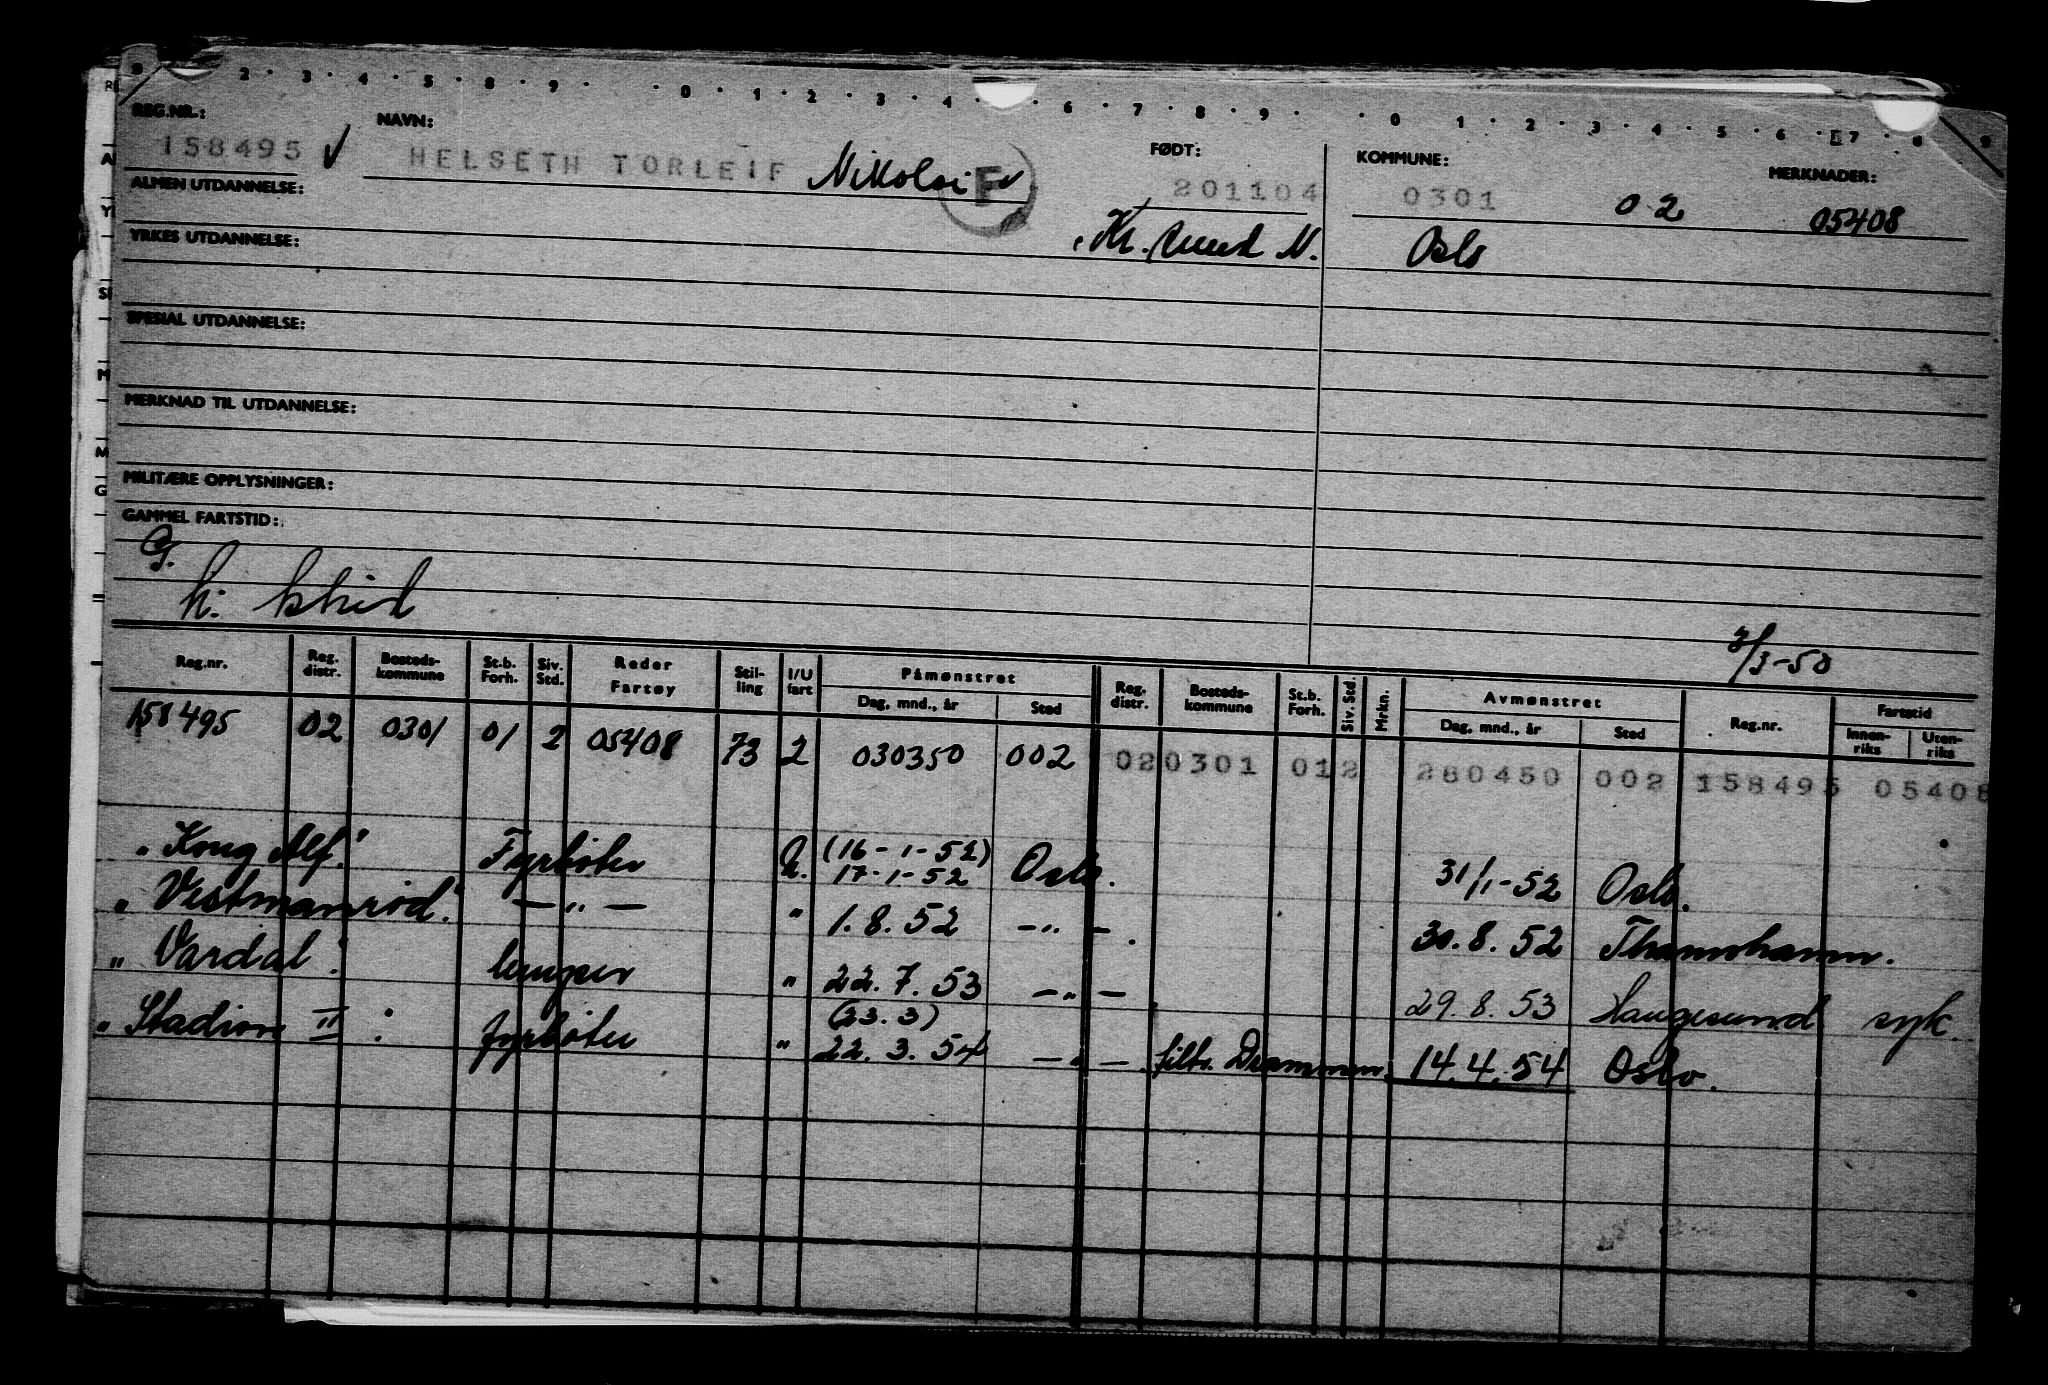 2 · 3 · 4 · 5 · 8 · 9 · · 0 · 1 · 2 · 3 · 4 · · 6 · 7 · 8 · 9 · · 0 · 1 · 2 · 3 · 4 · 5 · 6 · 7 · 8 · 9
REG.NR.: NAVN: FØDT: KOMMUNE: MERKNADER:
158495 ✓ HELSETH TORLEIF Nikolai F ✓ 201104 0301 02 05408
ALMEN UTDANNELSE:
Kr. sund N. Oslo
YRKES UTDANNELSE:
SPESIAL UTDANNELSE:
MERKNAD TIL UTDANNELSE:
MILITÆRE OPPLYSNINGER:
GAMMEL FARTSTID:
G.
h:
/3-50
Reg.nr. Reg. distr. Bosteds-kommune St.b. Forh. Siv. Std. Reder Fartøy Stil-ling I/U fart Påmønstret Dag, mnd., år Sted Reg. distr. Bosteds-kommune St.b. Forh. Siv. Std. Mrkn. Avmønstret Dag, mnd., år Sted Reg.nr. Fartstid Innen-riks Uten-riks
158495 02 0301 01 2 05408 73 2 030350 002 02 0301 01 2 280450 002 158495 05408
"Kong Alf." Fyrbøter U. (16-1-52) 17-1-52 Oslo. 31/1-52 Oslo.
"Vestmanrød." —"— " 1.8.52 —"—. 30.8.52
"Vardal". lemper " 22.7.53 —"— 29.8.53 Haugesund syk.
"Stadion II". fyrbøter " (23.3) 22.3.54 —"—. filtr. Drammen. 14.4.54 Oslo.